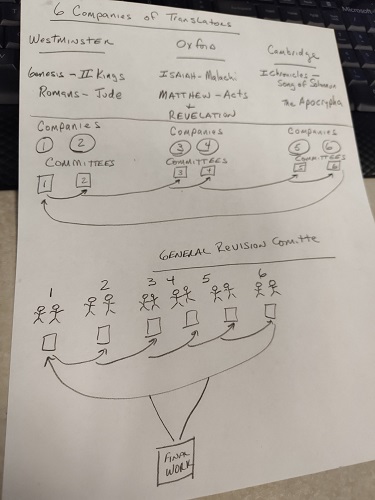 6 Companies of Translators
Westminster Oxford Cambridge
Genesis - II Kings ISAIAH - Malachi I Chronicles -
Song of Solomon
Romans - Jude MATTHEW - Acts the Apocrypha
+
REVELATION
Companies Companies Companies
1 2 3 4 5 6
COMMITTEES COMMITTEES COMMITTEES
1 2 3 4 5 6
GENERAL REVISION Comitte
1 2 3 4 5 6
FINAL
WORK